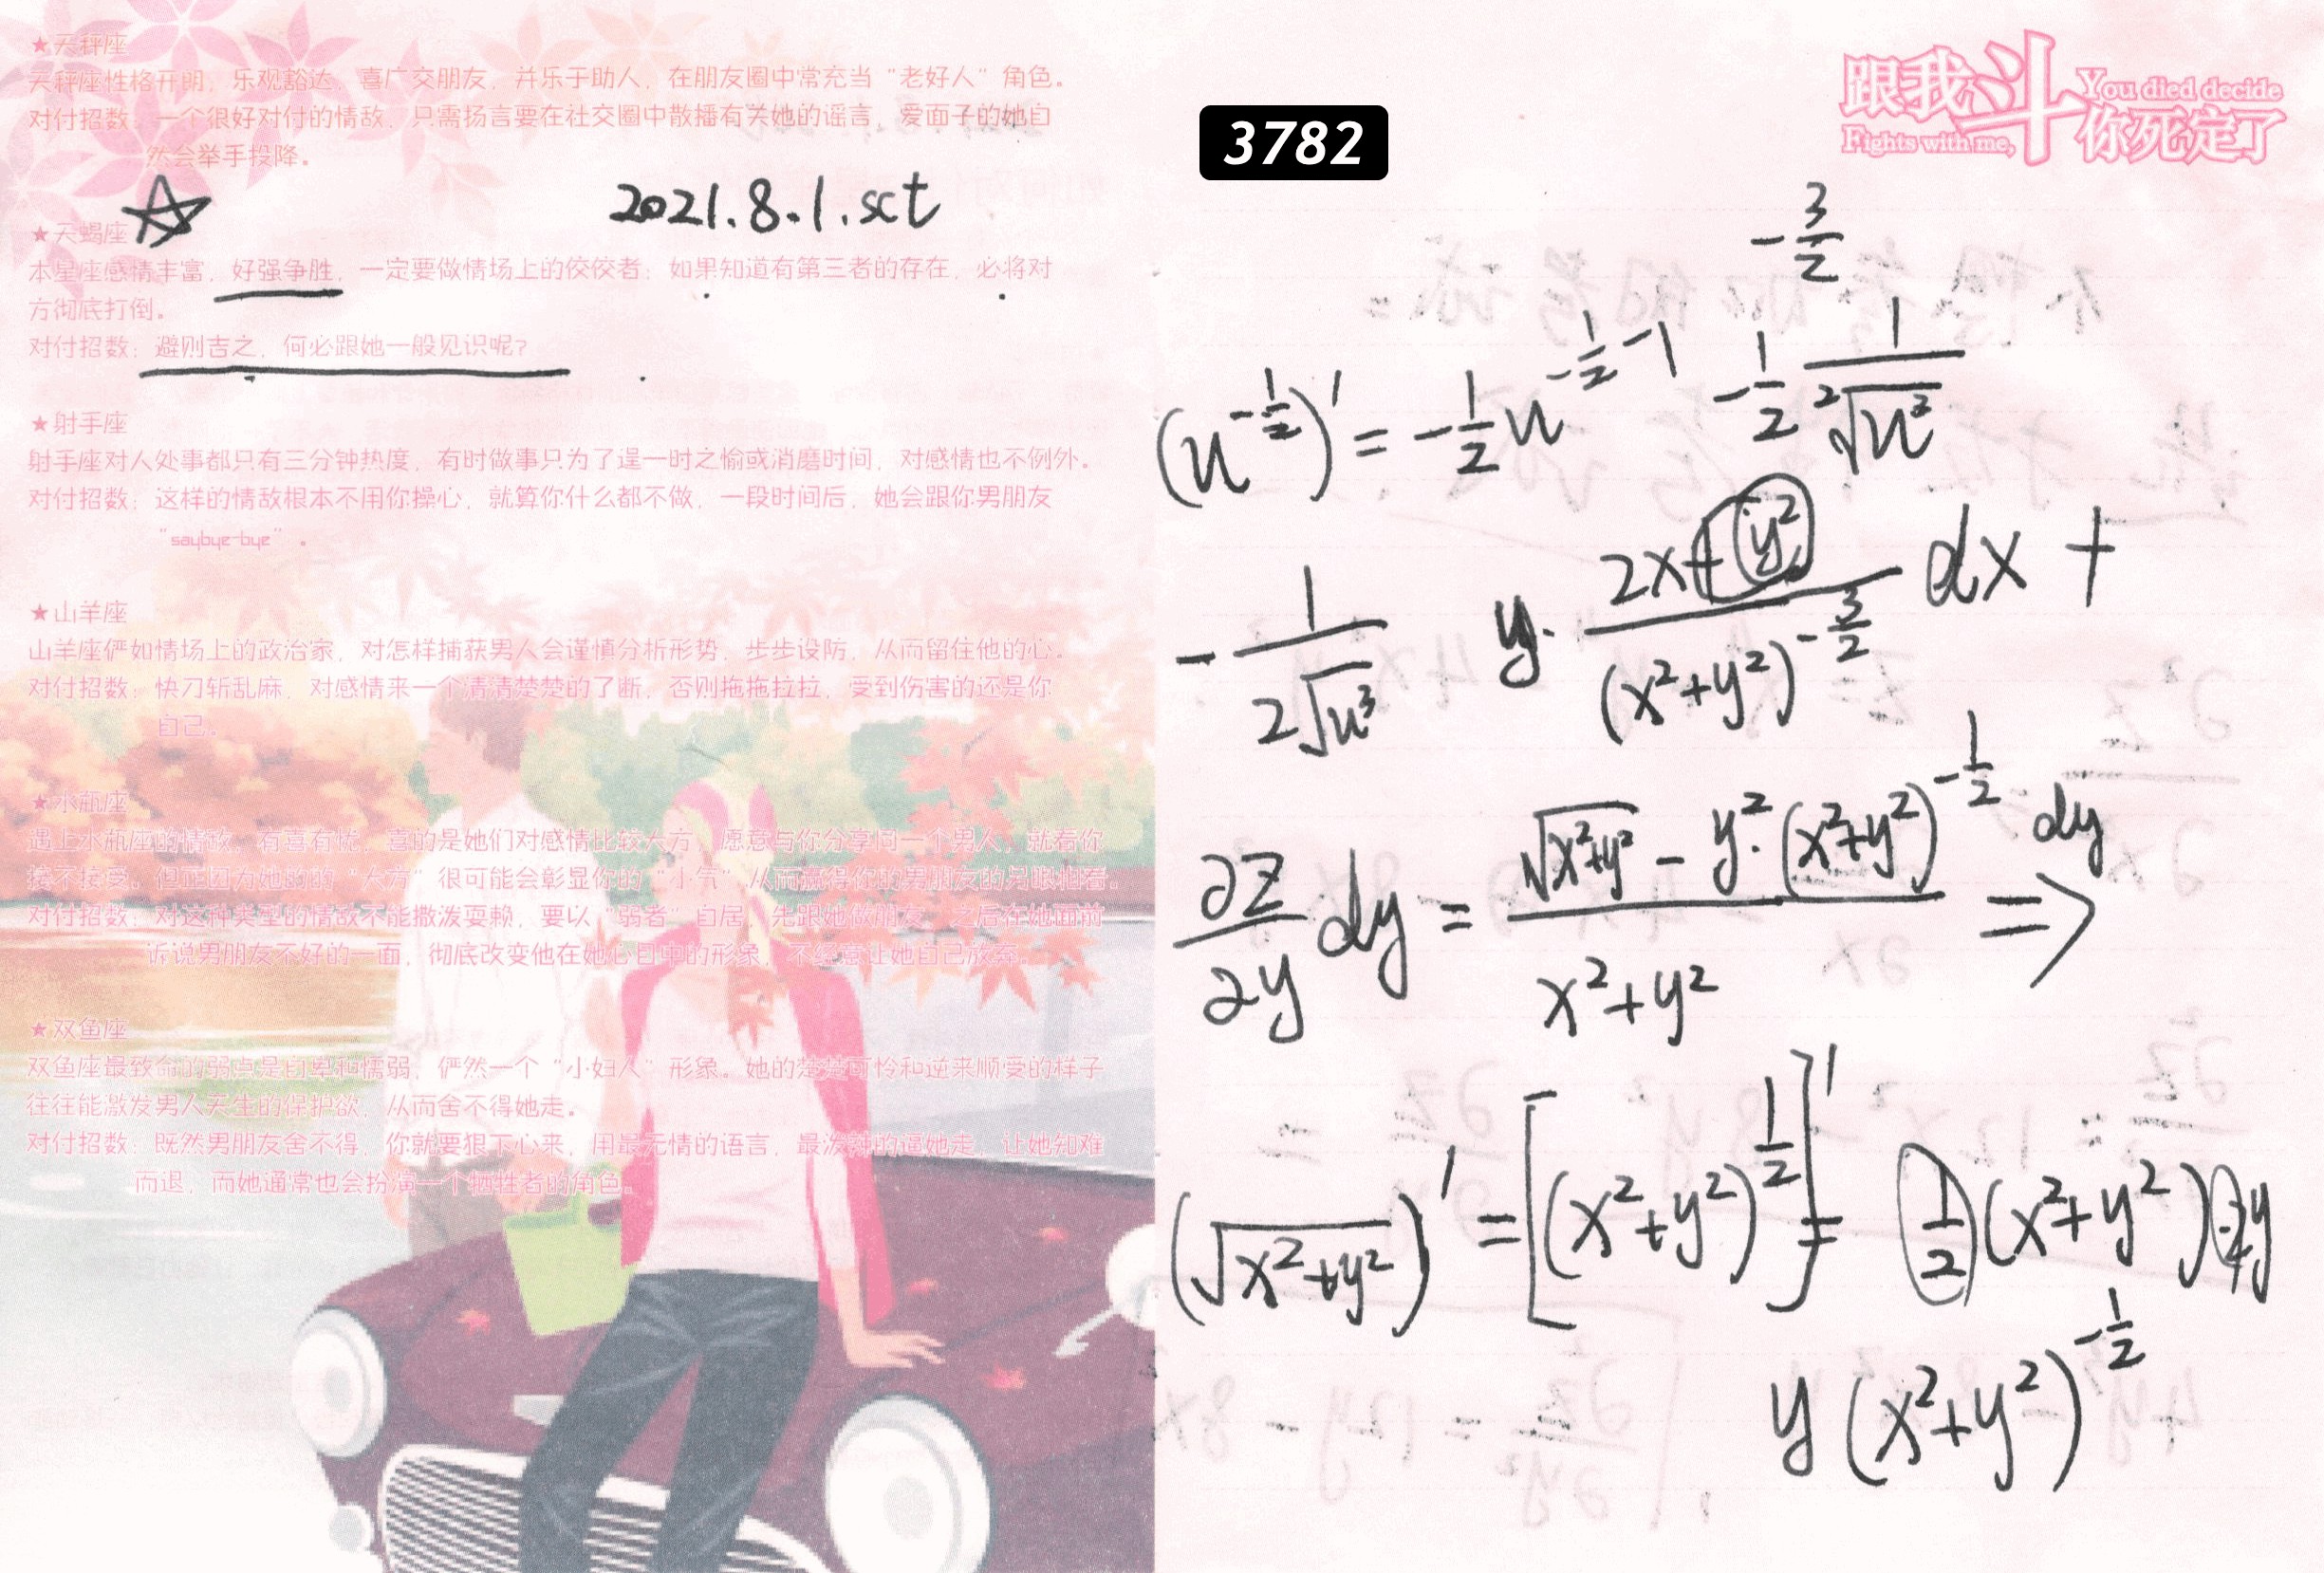 ★天秤座
天秤座性格开朗，乐观豁达，喜广交朋友，并乐于助人，在朋友圈中常充当“老好人”角色。
对付招数：一个很好对付的情敌，只需扬言要在社交圈中散播有关她的谣言，爱面子的她自
然会举手投降。
2021.8.1.sct
★天蝎座
本星座感情丰富，好强争胜，一定要做情场上的佼佼者；如果知道有第三者的存在，必将对
方彻底打倒。
对付招数：避则吉之，何必跟她一般见识呢？
★射手座
射手座对人处事都只有三分钟热度，有时做事只为了逞一时之愉或消磨时间，对感情也不例外。
对付招数：这样的情敌根本不用你操心，就算你什么都不做，一段时间后，她会跟你男朋友
“saybye-bye”。
★山羊座
山羊座俨如情场上的政治家，对怎样捕获男人会谨慎分析形势，步步设防，从而留住他的心。
对付招数：快刀斩乱麻，对感情来一个清清楚楚的了断，否则拖拖拉拉，受到伤害的还是你
自己。
★水瓶座
遇上水瓶座的情敌，有喜有忧，喜的是她们对感情比较大方，愿意与你分享同一个男人，就看你
接不接受。但正因为她的的“大方”很可能会彰显你的“小气”，从而赢得你的男朋友的另眼相看。
对付招数：对这种类型的情敌不能撒泼耍赖，要以“弱者”自居，先跟她做朋友，之后在她面前
诉说男朋友不好的一面，彻底改变他在她心目中的形象，不经意让她自己放弃。
★双鱼座
双鱼座最致命的弱点是自卑和懦弱，俨然一个“小妇人”形象。她的楚楚可怜和逆来顺受的样子
往往能激发男人天生的保护欲，从而舍不得她走。
对付招数：既然男朋友舍不得，你就要狠下心来，用最无情的语言，最泼辣的逼她走，让她知难
而退，而她通常也会扮演一个牺牲者的角色。
3782
跟我斗你死定了
You died decide
Fights with me,
-3/2
(u^{-1/2})' = -1/2 u^{-1/2 -1} -1/2 1/²√u³
-1/2√u³ y·(2x+y²)/(x²+y²)^{-3/2} dx +
∂z/∂y dy = (√x²+y² - y²·(x²+y²)^{-1/2})/(x²+y²) dy =>
(√x²+y²)' = [(x²+y²)^{1/2}]' = 1/2(x²+y²)·2y
y(x²+y²)^{-1/2}